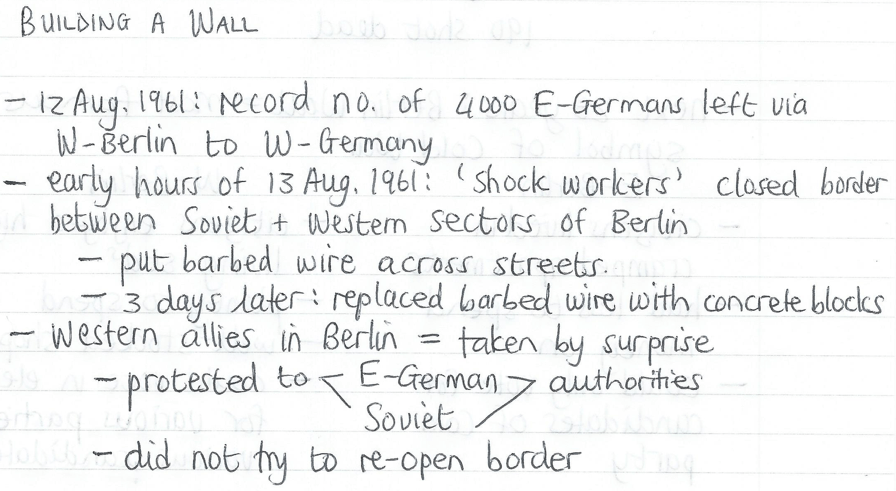 BUILDING A WALL
- 12 Aug. 1961: record no. of 4000 E-Germans left via
W-Berlin to W-Germany
- early hours of 13 Aug. 1961: 'shock workers' closed border
between Soviet + Western sectors of Berlin
- put barbed wire across streets.
- 3 days later: replaced barbed wire with concrete blocks
- Western allies in Berlin = taken by surprise
- protested to < E-German > authorities
Soviet
- did not try to re-open border